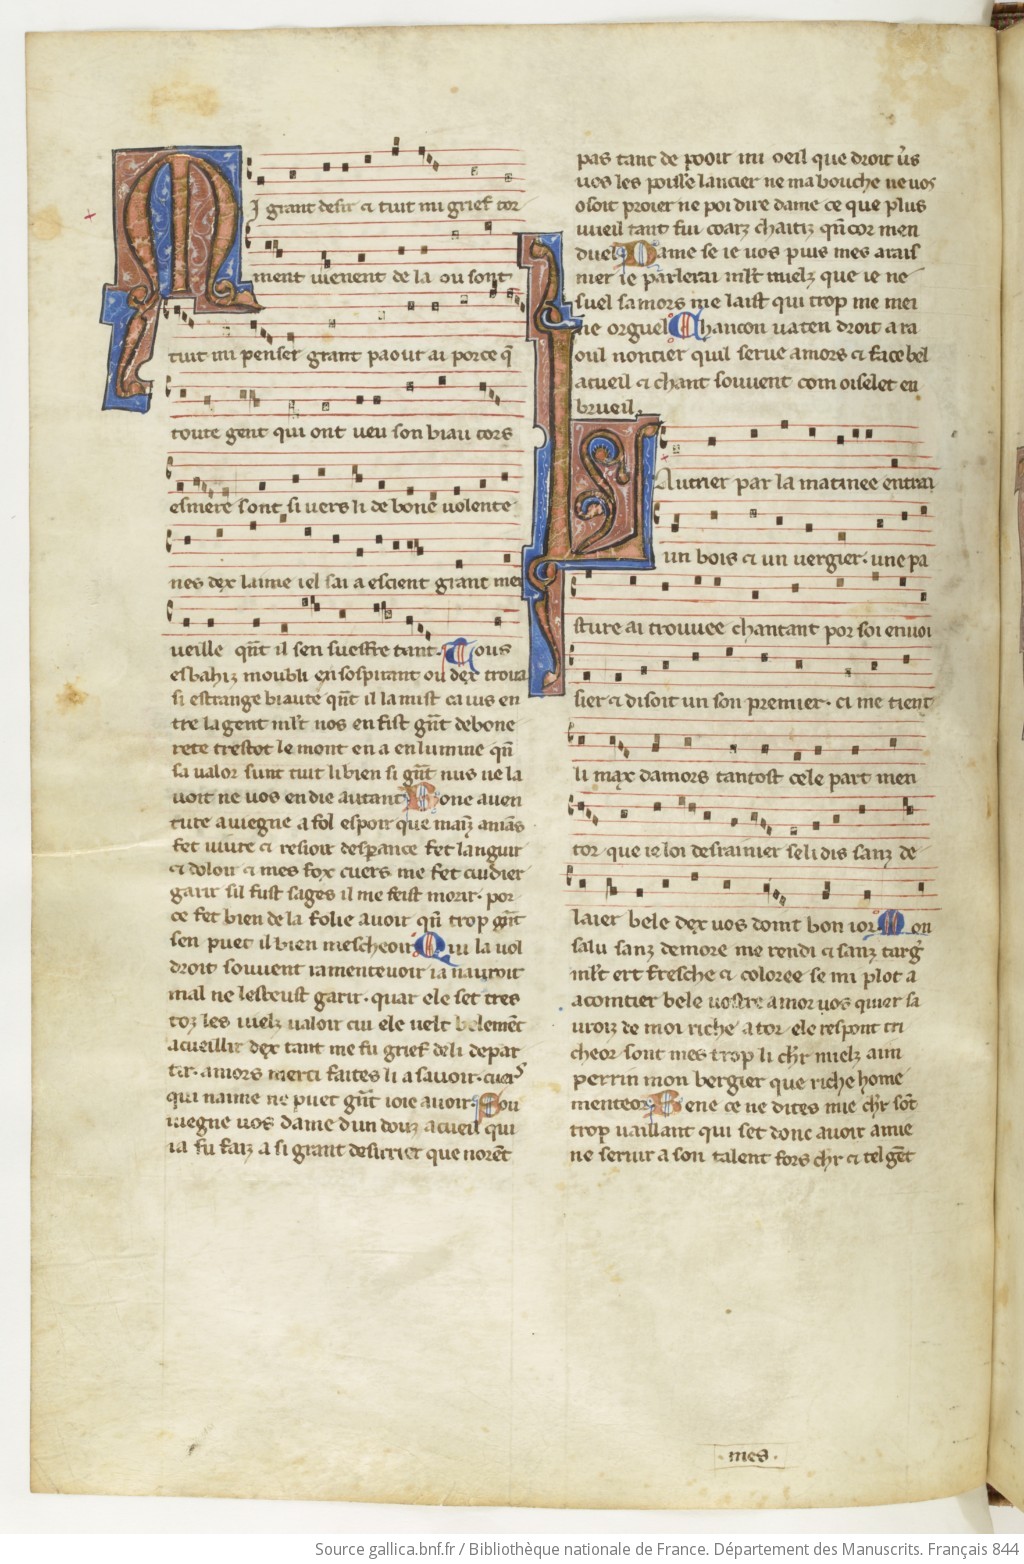 MI grant desir et tuit mi grief tor
ment vienent de la ou sont
tuit mi penser grant paour ai por ce q̄
toute gent qui ont veu son biau cors
esmere sont si vers li de bone volente
nes dex laime iel sai a escient grant mer
veille qn̄t il sen sueffre tant. Tous
esbahiz moubli en sospirant ou dex trova
si estrange biaute qn̄t il la mist ca ius en
tre la gent ml't nos en fist gn̄t debone
rete trestot le mont en a enlumine qn̄
sa valor sunt tuit li bien si gn̄t nus ne la
voit ne vos en die autant Bone aven
ture aviegne a fol espoir que mainz amās
fet vivre et resioir desperance fet languir
et doloir et mes fox cuers me fet cuidier
garir sil fust sages il me feist morir. por
ce fet bien de la folie avoir qn̄ trop gn̄t
sen puet il bien mescheoir Qui la vol
droit souvent ramentevoir ia navroit
mal ne lesteust garir. quar ele set tres
toz les mielz valoir cui ele velt belemēt
acueillir dex tant me fu grief de li depar
tir. amors merci faites li a savoir. cuers
qui naime ne puet gn̄t ioie avoir. Sou
viegne vos dame dun douz acueil qui
ia fu faiz a si grant desirrier que norēt
pas tant de pooir mi oeil que droit v̄s
vos les poisse lancier ne ma bouche ne vos
osoit proier ne poi dire dame ce que plus
vueil tant fui coarz chaitiz qn̄cor men
duel Dame se ie vos puis mes arais
nier ie parlerai ml't mielz que ie ne
suel samors me laist qui trop me mei
ne orguel Chancon va ten droit a ra
oul noncier quil serve amors et face bel
acueil et chant souvent com oiselet en
brueil.
LAutrier par la matinee entrai
un bois et un vergier. une pa
sture ai trouvee chantant por soi envoi
sier et disoit un son premier. ci me tient
li max damors tantost cele part men
tor que ie loi desrainier se li dis sanz de
laier bele dex vos doint bon ior Mon
salu sanz demore me rendi et sanz tarḡ
ml't ert fresche et coloree se mi plot a
acointier bele vostre amor vos quier sa
vroiz de moi riche ator ele respont tri
cheor sont mes trop li chr̄ mielz aim
perrin mon bergier que riche home
menteor. Bene ce ne dites mie chr̄ sōt
trop vaillant qui set donc avoir amie
ne servir a son talent fors chr̄ et tel gēt
.mes.
Source gallica.bnf.fr / Bibliothèque nationale de France. Département des Manuscrits. Français 844